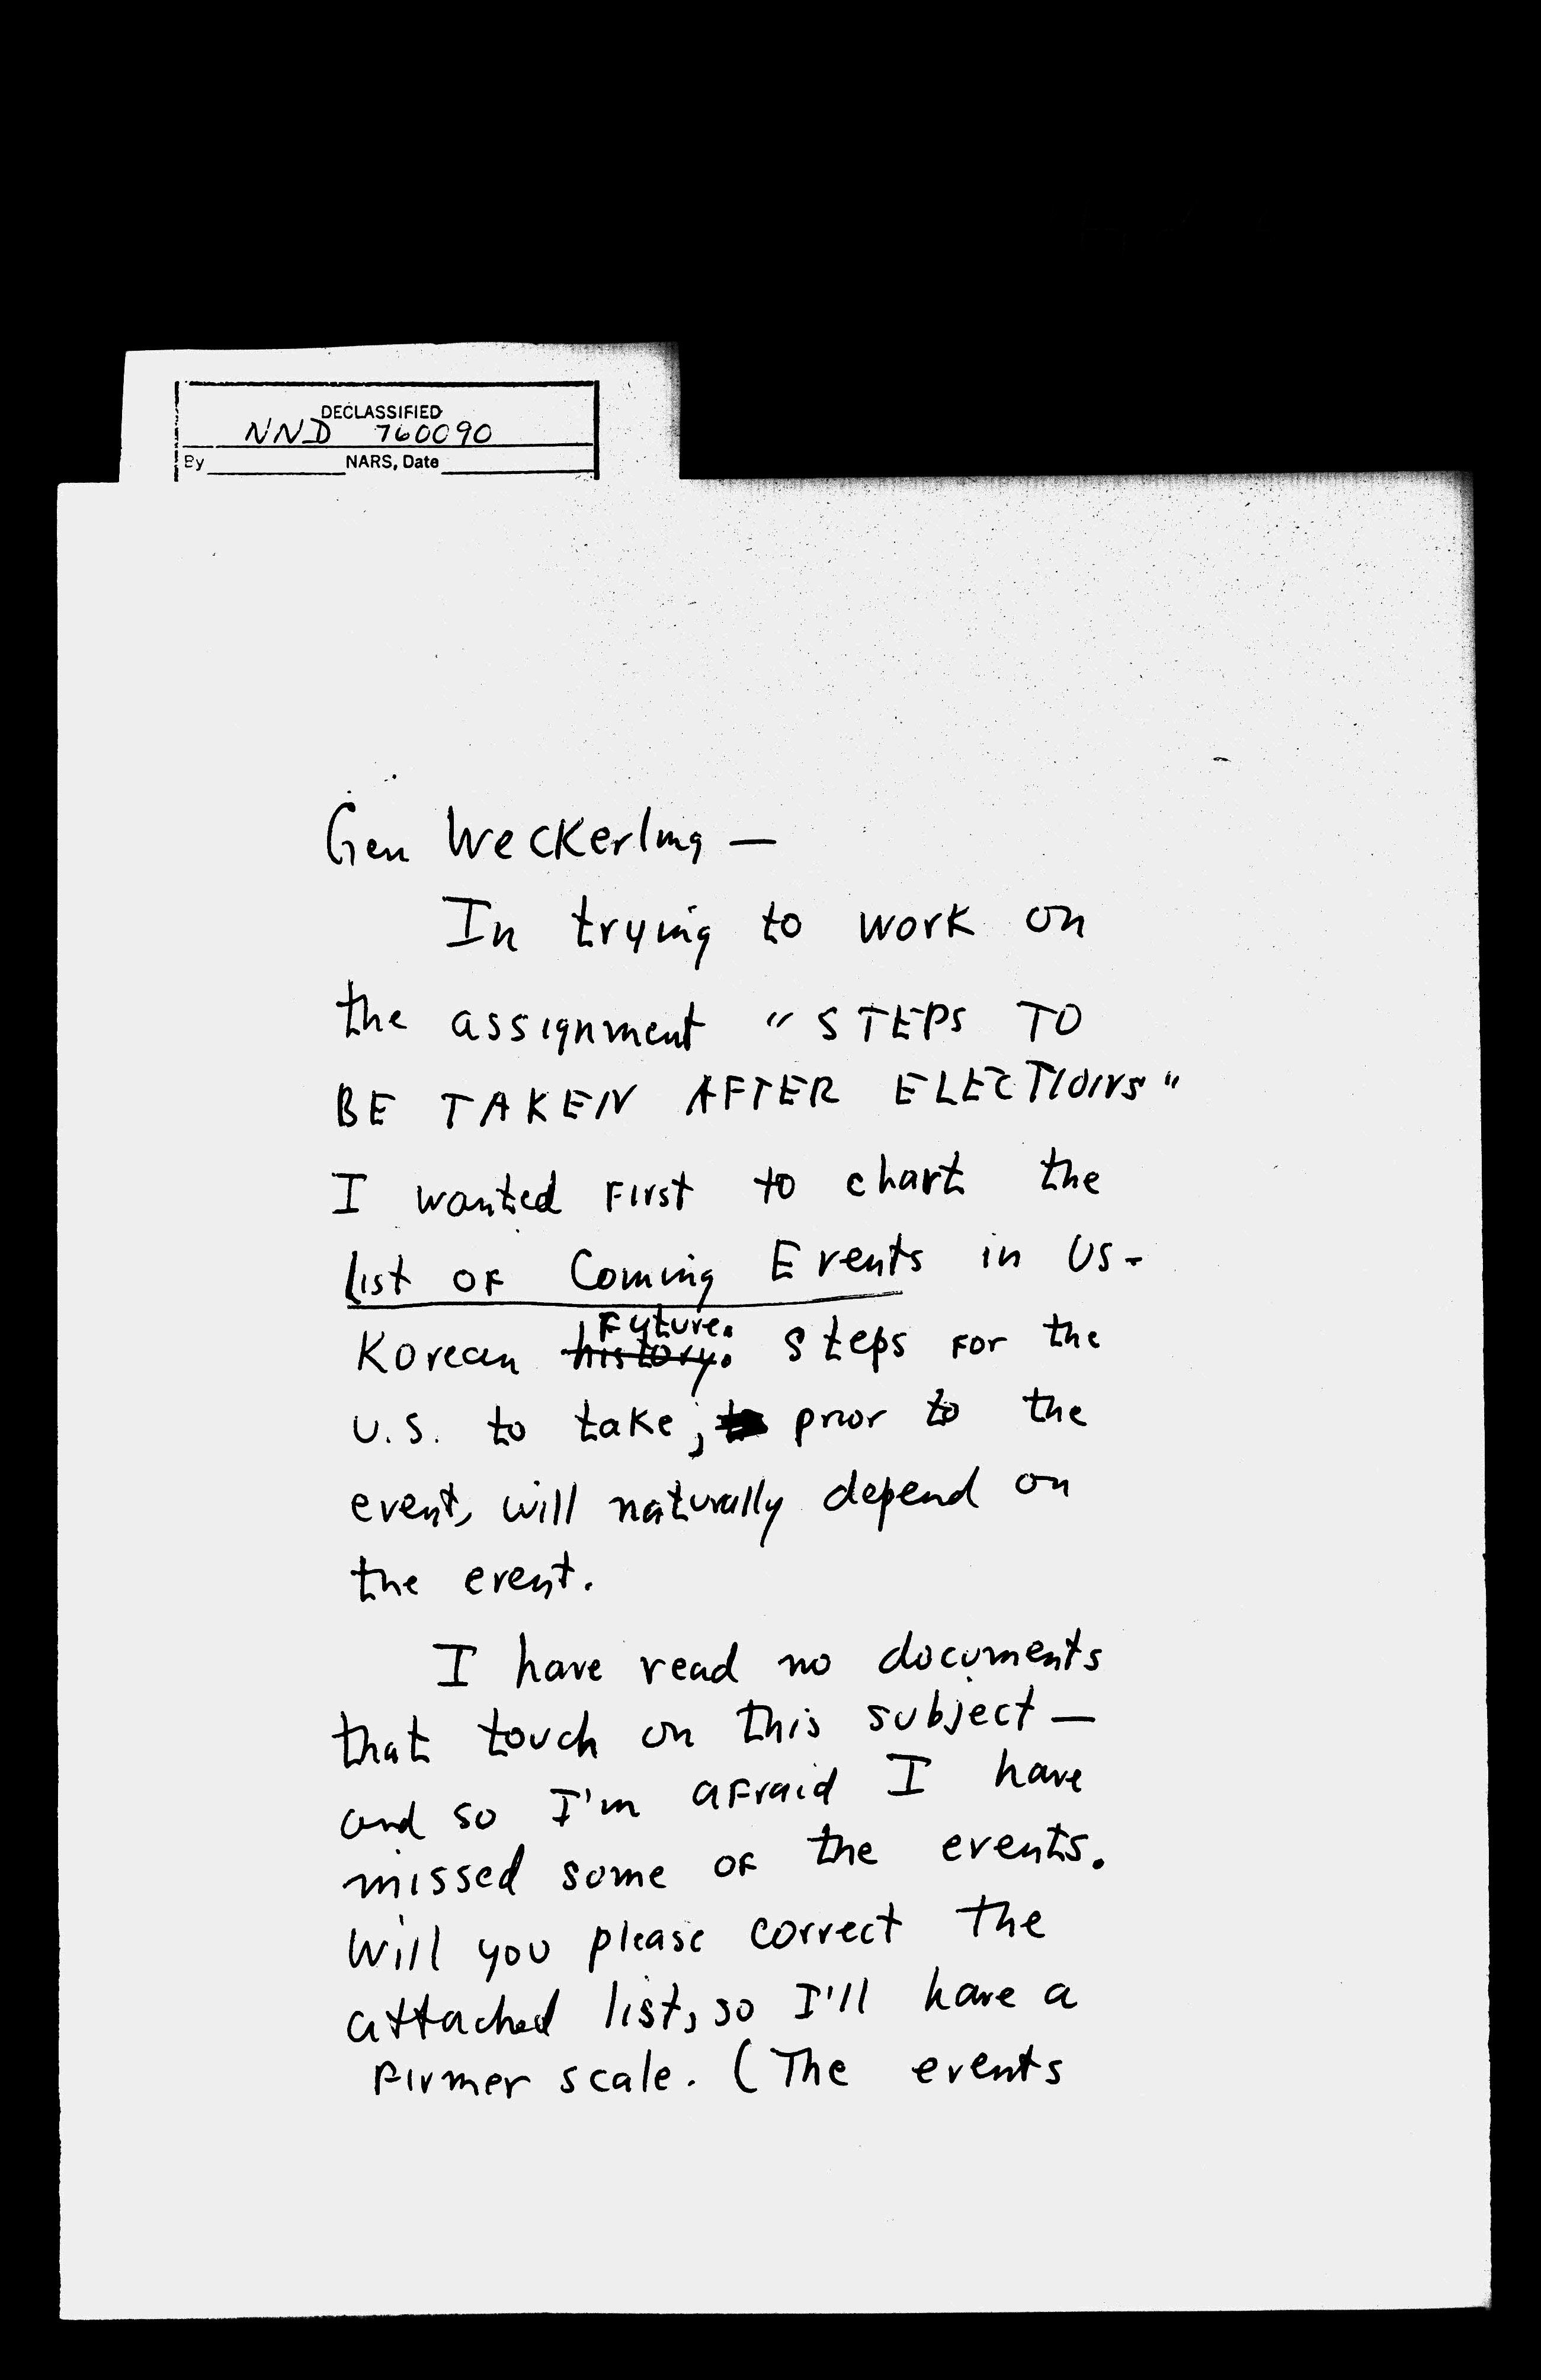 DECLASSIFIED
NND 760090
By NARS, Date
Gen Weckerling —
In trying to work on
the assignment "STEPS TO
BE TAKEN AFTER ELECTIONS"
I wanted first to chart the
list of Coming Events in US-
Korean history. Future. Steps for the
U.S. to take, prior to the
event, will naturally depend on
the event.
I have read no documents
that touch on this subject —
and so I'm afraid I have
missed some of the events.
Will you please correct the
attached list, so I'll have a
firmer scale. (The events